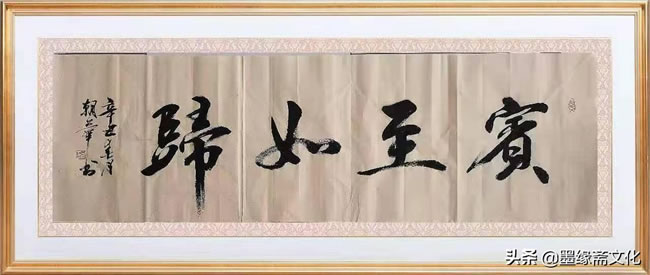 賓至如歸
辛丑
头条 @墨缘斋文化